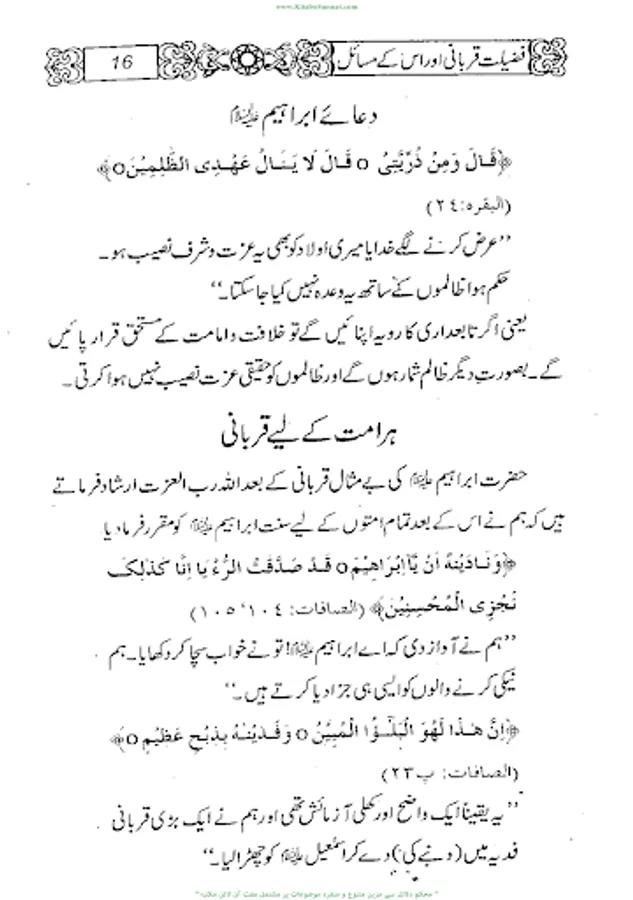 www.KitaboSunnat.com
فضیلت قربانی اور اس کے مسائل
16
دعائے ابراہیم علیہ السلام
﴿قَالَ وَمِنْ ذُرِّيَّتِىْ ٥ قَالَ لَا يَنَالُ عَهْدِى الظّٰلِمِيْنَ٥﴾
(البقره: ٢٤)
’’عرض کرنے لگے خدایا میری اولاد کو بھی یہ عزت و شرف نصیب ہو۔
حکم ہوا ظالموں کے ساتھ یہ وعدہ نہیں کیا جا سکتا۔‘‘
یعنی اگر تابعداری کا رویہ اپنائیں گے تو خلافت و امامت کے مستحق قرار پائیں
گے۔ بصورتِ دیگر ظالم شمار ہوں گے اور ظالموں کو حقیقی عزت نصیب نہیں ہوا کرتی۔
ہر امت کے لیے قربانی
حضرت ابراہیم علیہ السلام کی بے مثال قربانی کے بعد اللہ رب العزت ارشاد فرماتے
ہیں کہ ہم نے اس کے بعد تمام امتوں کے لیے سنت ابراہیم علیہ السلام کو مقرر فرما دیا
﴿وَنَادَيْنٰهُ اَنْ يّٰٓاِبْرَاهِيْمَ٥ قَدْ صَدَّقْتَ الرُّءْيَا اِنَّا كَذٰلِكَ
نَجْزِى الْمُحْسِنِيْنَ﴾ (الصافات: ١٠٤‘ ١٠٥)
’’ہم نے آواز دی کہ اے ابراہیم علیہ السلام! تو نے خواب سچا کر دکھایا۔ ہم
نیکی کرنے والوں کو ایسی ہی جزا دیا کرتے ہیں۔‘‘
﴿اِنَّ هٰذَا لَهُوَ الْبَلٰٓؤُا الْمُبِيْنُ ٥ وَفَدَيْنٰهُ بِذِبْحٍ عَظِيْمٍ ٥﴾
(الصافات: پ٢٣)
’’یہ یقیناً ایک واضح اور کھلی آزمائش تھی اور ہم نے ایک بڑی قربانی
فدیہ میں (دنبے کی) دے کر اسمٰعیل علیہ السلام کو چھڑا لیا۔‘‘
"محکم دلائل سے مزین متنوع و منفرد موضوعات پر مشتمل مفت آن لائن مکتبہ"